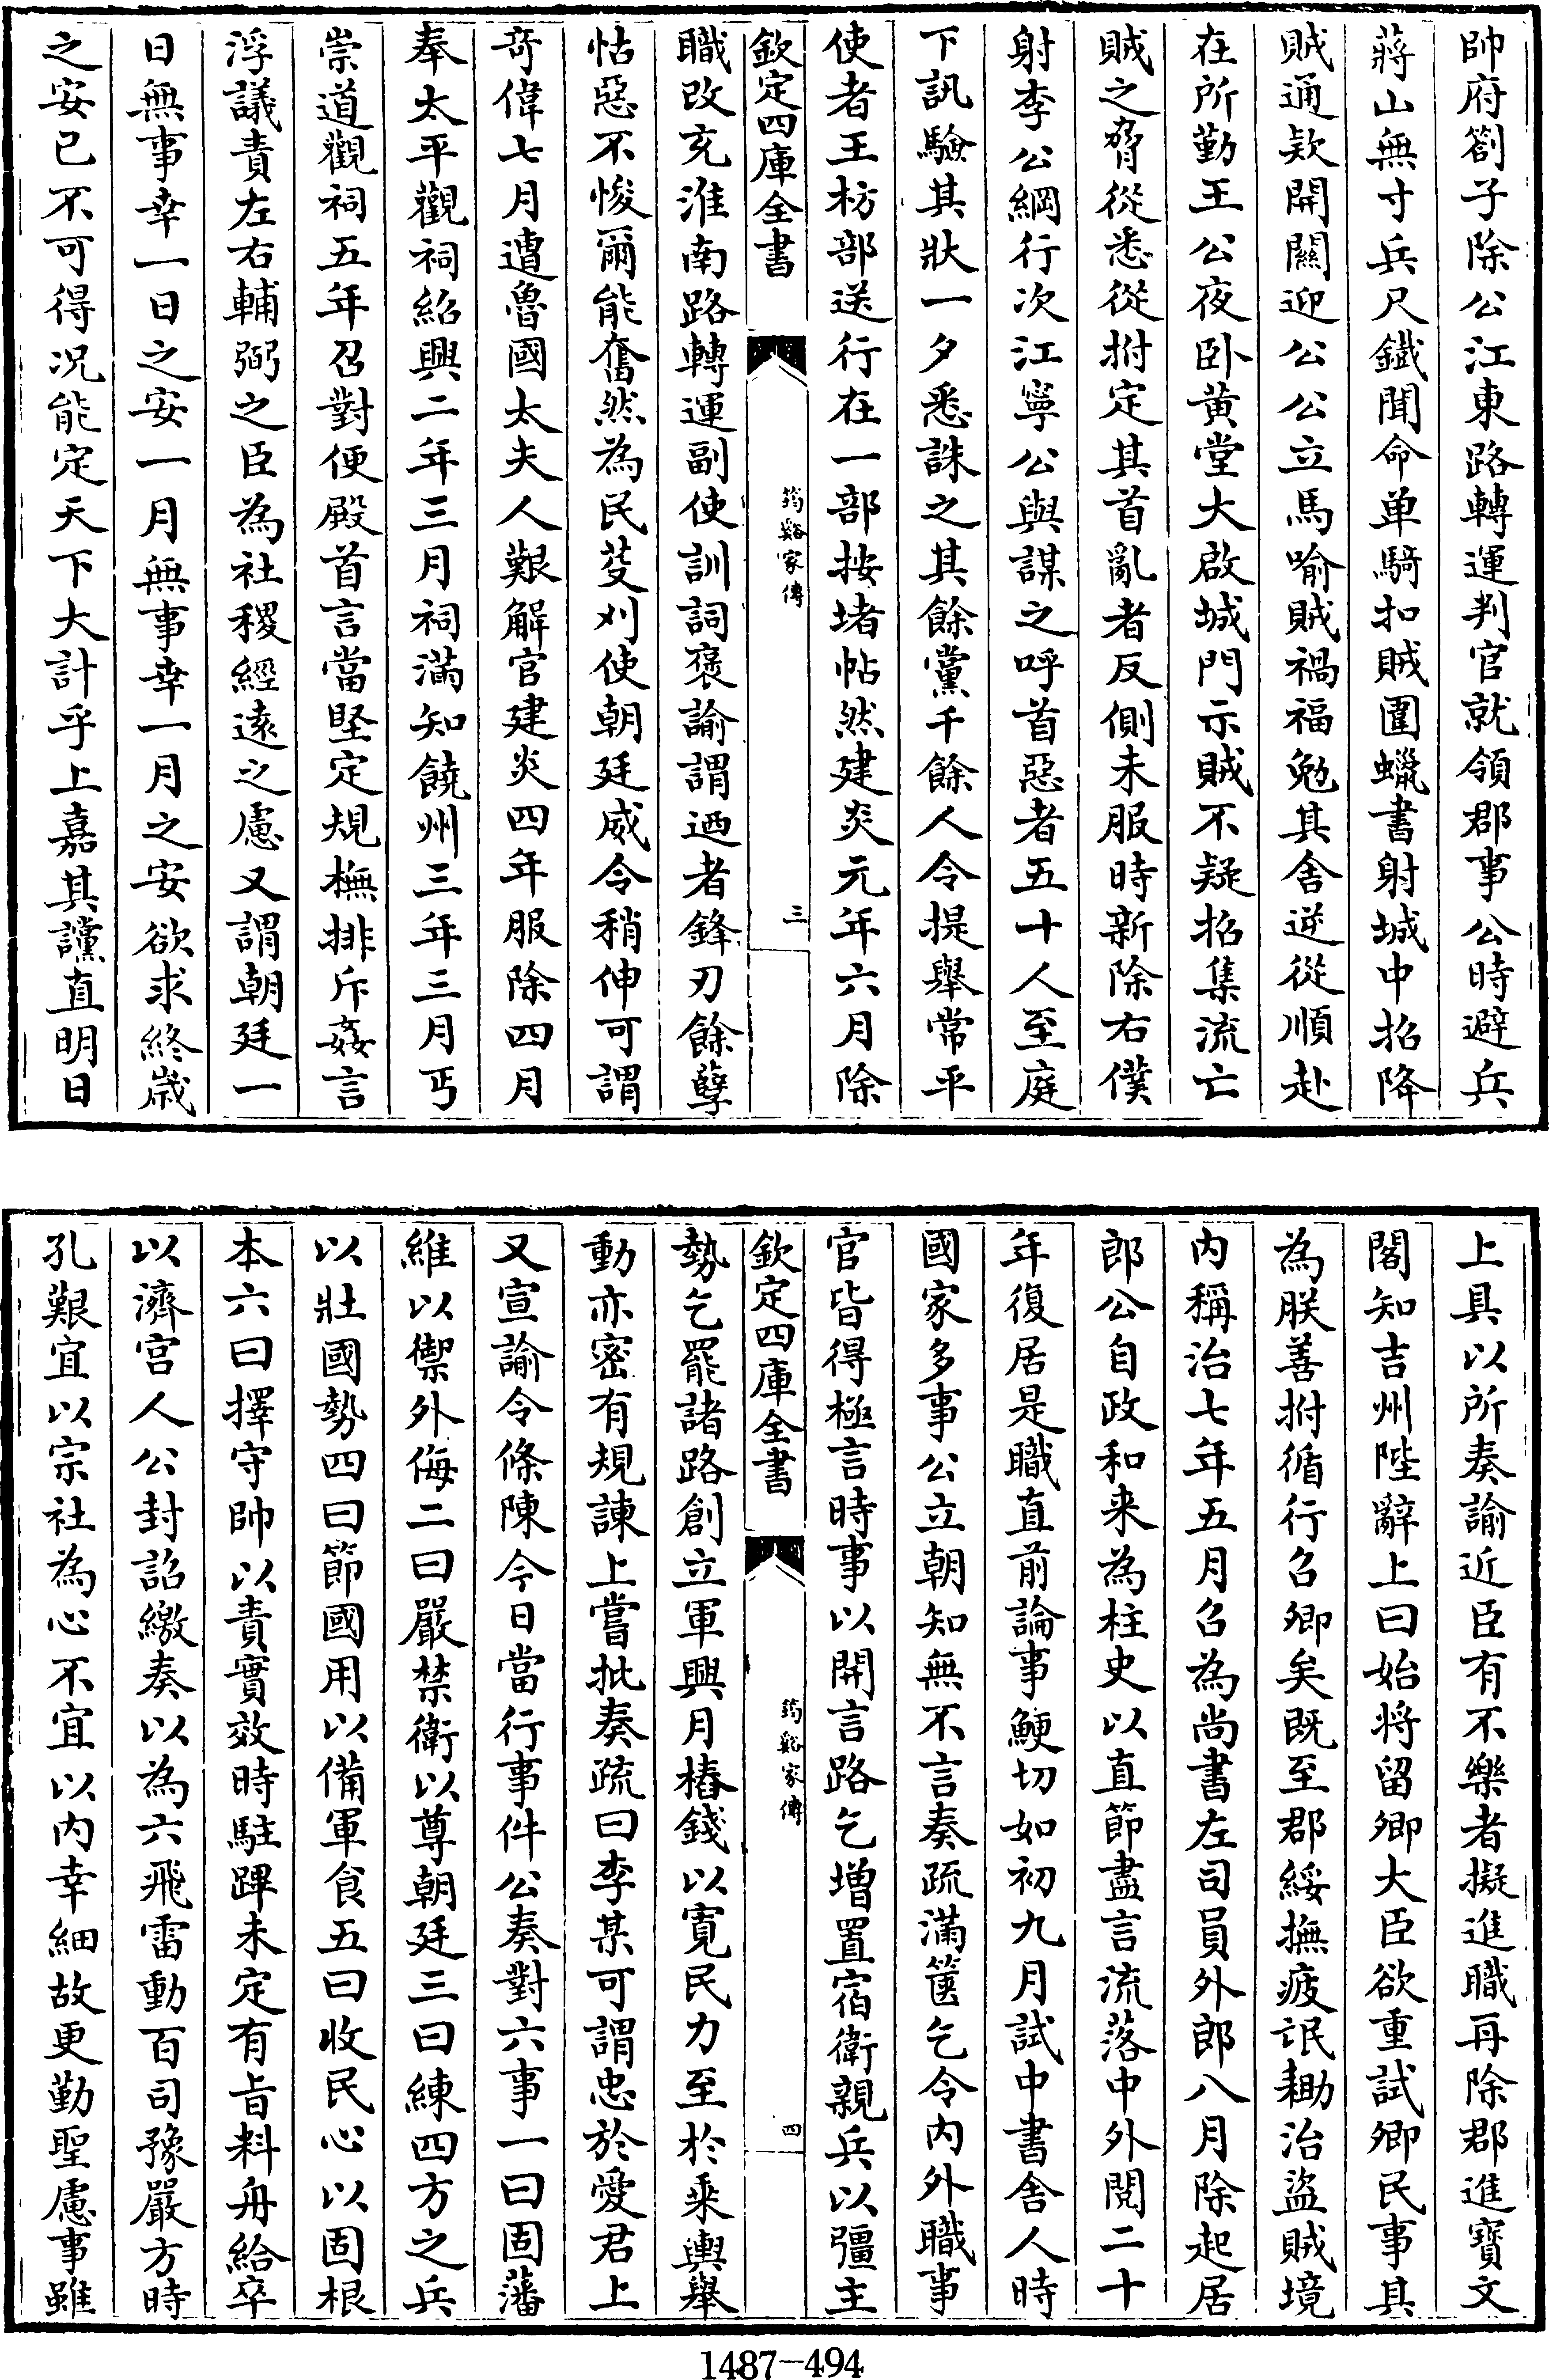 帥府劄子除公江東路轉運判官就領郡事公時避兵
蔣山無寸兵尺鐵聞命单騎扣賊圍蠟書射城中招降
賊通欵開關迎公公立馬喻賊禍福勉其舍逆從順赴
在所勤王公夜卧黄堂大啟城門示賊不疑招集流亡
賊之脅從悉從拊定其首亂者反側未服時新除右僕
射李公綱行次江寧公與謀之呼首惡者五十人至庭
下訊驗其狀一夕悉誅之其餘黨千餘人令提舉常平
使者王枋部送行在一部按堵帖然建炎元年六月除
欽定四庫全書
筠谿家傳
三
職改充淮南路轉運副使訓詞褒諭謂迺者鋒刃餘孽
怙惡不悛爾能奮然為民芟刈使朝廷威令稍伸可謂
奇偉七月遭魯國太夫人艱解官建炎四年服除四月
奉太平觀祠紹興二年三月祠滿知饒州三年三月丐
崇道觀祠五年召對便殿首言當堅定規橅排斥姦言
浮議責左右輔弼之臣為社稷經逺之慮又謂朝廷一
日無事幸一日之安一月無事幸一月之安欲求終歲
之安已不可得况能定天下大計乎上嘉其讜直明日
上具以所奏諭近臣有不樂者擬進職再除郡進寶文
閣知吉州陛辭上曰始将留卿大臣欲重試卿民事其
為朕善拊循行召卿矣既至郡綏撫疲氓耡治盜賊境
内稱治七年五月召為尚書左司員外郎八月除起居
郎公自政和来為柱史以直節盡言流落中外閱二十
年復居是職直前論事鯁切如初九月試中書舍人時
國家多事公立朝知無不言奏疏滿篋乞令内外職事
官皆得極言時事以開言路乞增置宿衛親兵以彊主
欽定四庫全書
筠谿家傳
四
勢乞罷諸路創立軍興月樁錢以寛民力至於乘輿舉
動亦密有規諫上嘗批奏疏曰李某可謂忠於愛君上
又宣諭令條陳今日當行事件公奏對六事一曰固藩
維以禦外侮二曰嚴禁衛以尊朝廷三曰練四方之兵
以壯國勢四曰節國用以備軍食五曰收民心以固根
本六曰擇守帥以責實效時駐蹕未定有旨料舟給卒
以濟宫人公封詔繳奏以為六飛雷動百司豫嚴方時
孔艱宜以宗社為心不宜以内幸細故更勤聖慮事雖
1487-494